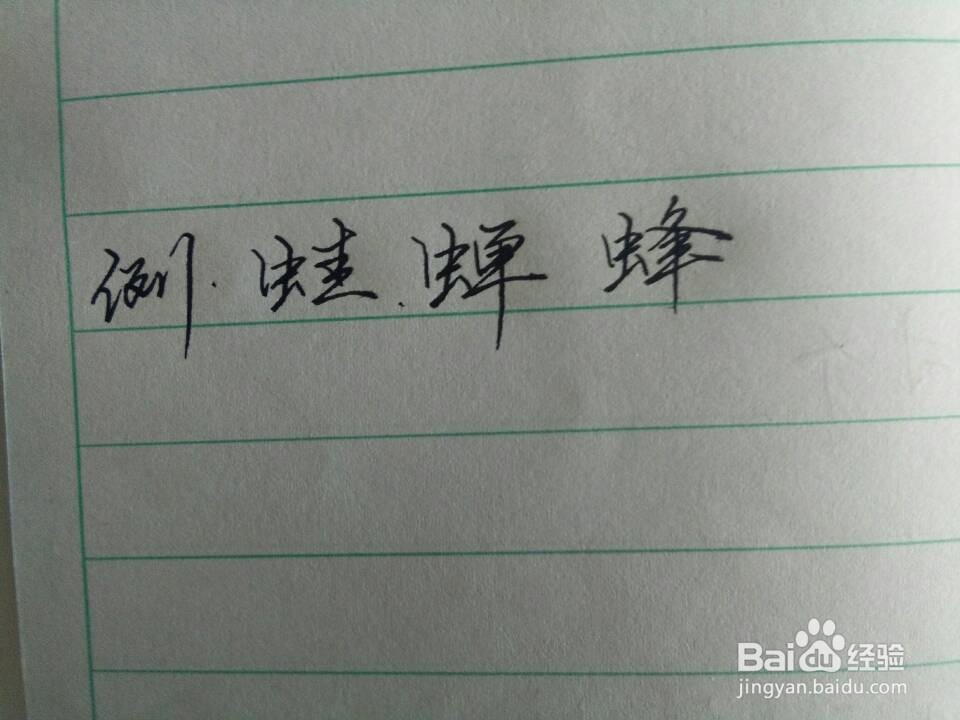 例.蛙.蝉 蜂
Baidu经验
jingyan.baidu.com